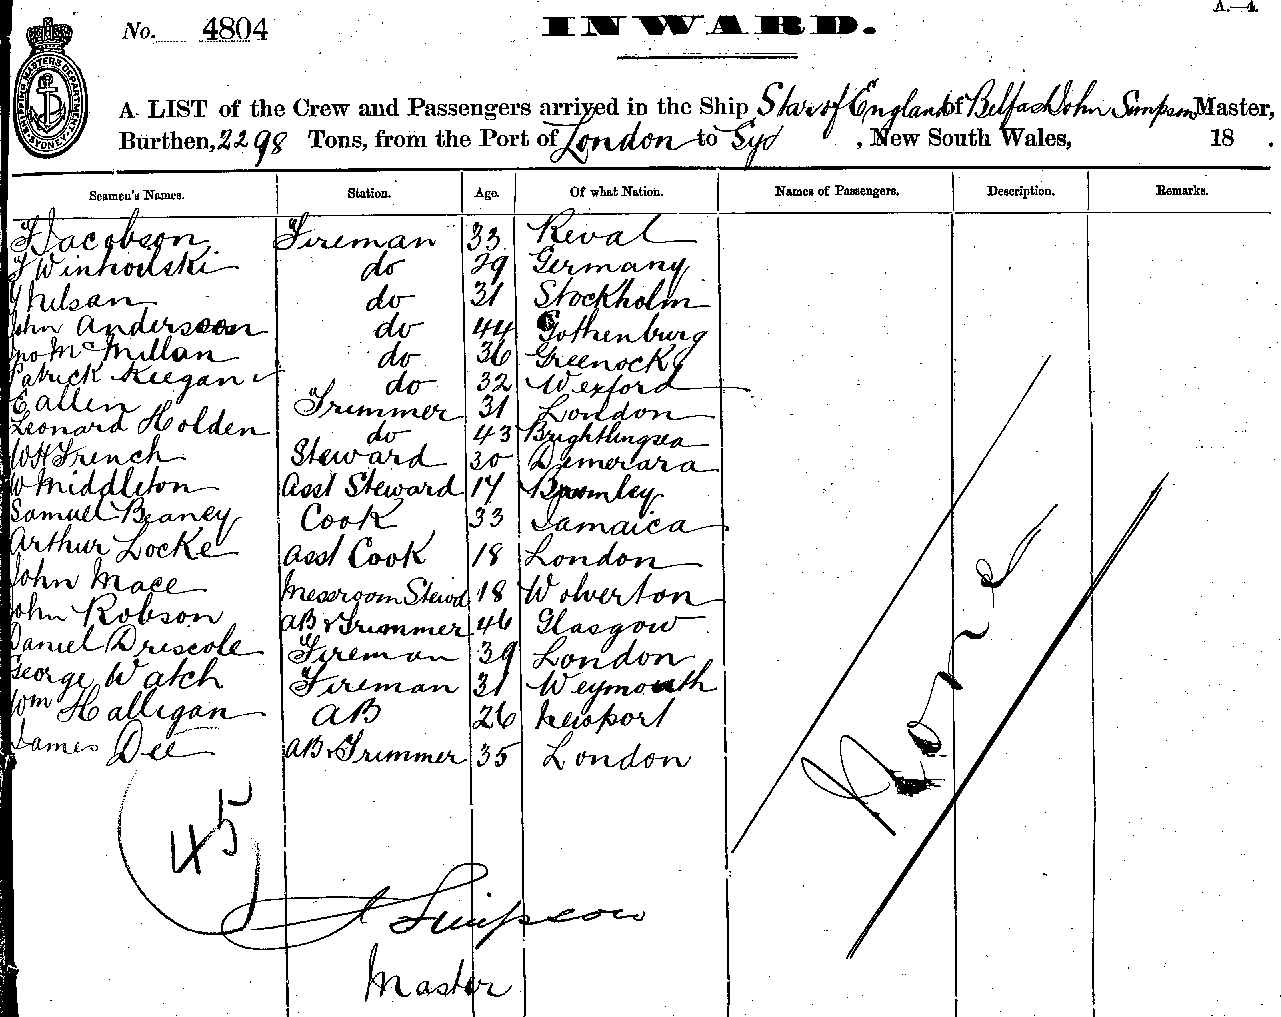 A.—4.
No. 4804 INWARD.
SHIPPING MASTERS DEPARTMENT SYDNEY
A LIST of the Crew and Passengers arrived in the Ship Star of England of Belfast John Simpson Master,
Burthen, 2298 Tons, from the Port of London to Syd , New South Wales, 18 .
Seamen's Names. Station. Age. Of what Nation. Names of Passengers. Description. Remarks.
F Jacobson Fireman 33 Reval
do 29 Germany
do 31 Stockholm
John Andersson do 44 Gothenburg
Jno McMillan do 36 Greenock
Patrick Keegan do 32 Wexford
E Allen Trimmer 31 London
Leonard Holden do 43 Brightlingsea
WH French Steward 30 Demerara
W Middleton Asst Steward 17 Bromley
Samuel Beaney Cook 33 Jamaica
Arthur Locke Asst Cook 18 London
John Mace Messroom Stewd 18 Wolverton
John Robson AB & Trimmer 46 Glasgow
Daniel Driscole Fireman 39 London
George Watch Fireman 31 Weymouth
Wm Halligan AB 26 Newport
James Dee AB & Trimmer 35 London
None
45
J Simpson
Master